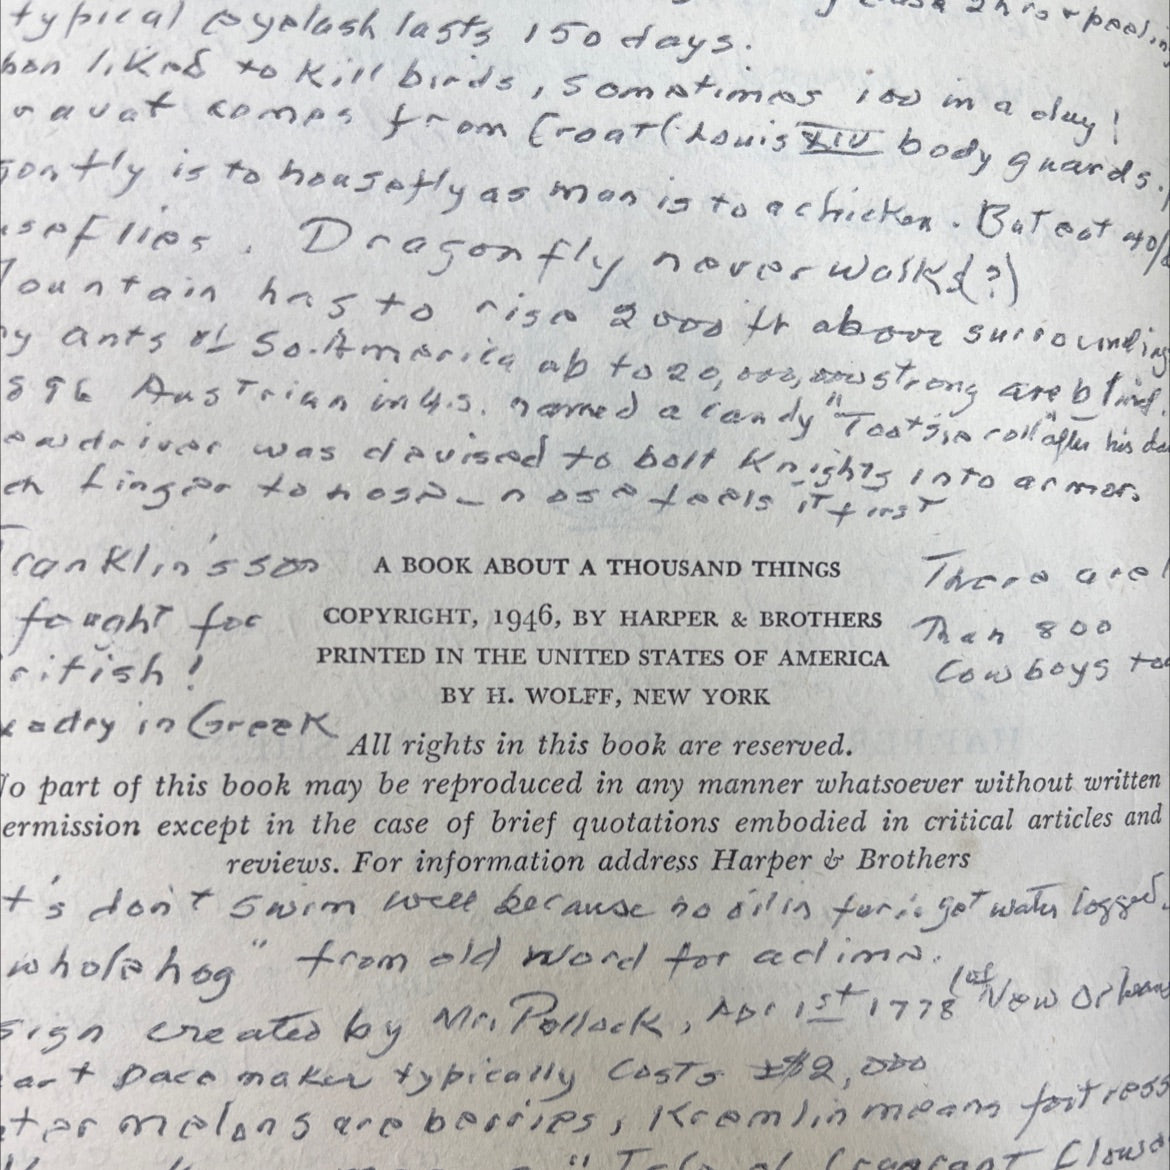 typical eyelash lasts 150 days.
liked to kill birds, sometimes 100 in a day!
comes from Croat (Louis XIV body guards.
is to housefly as man is to a chicken. But eat 40/
flies. Dragonfly never walks(?)
ountain has to rise 2000 ft above surrounding
ants of So. America up to 20,000,000 strong are blind.
896 Austrian in U.S. named a candy "Tootsie roll" after his da
driver was devised to bolt Knights into armor.
ch finger to nose_nose feels it first
Franklin's son
fought for
ritish!
in Greek
A BOOK ABOUT A THOUSAND THINGS
COPYRIGHT, 1946, BY HARPER & BROTHERS
PRINTED IN THE UNITED STATES OF AMERICA
BY H. WOLFF, NEW YORK
There are
Than 800
Cowboys
All rights in this book are reserved.
No part of this book may be reproduced in any manner whatsoever without written
ermission except in the case of brief quotations embodied in critical articles and
reviews. For information address Harper & Brothers
t's don't swim well because no oil in fur. get water logged.
whole hog" from old word for a dime.
sign created by Mr. Pollock, Apr 1st 1778 (of New Orleans
art pace maker typically costs $2,000
ter melons are berries, Kremlin means fortress
"Tale of Fragrant